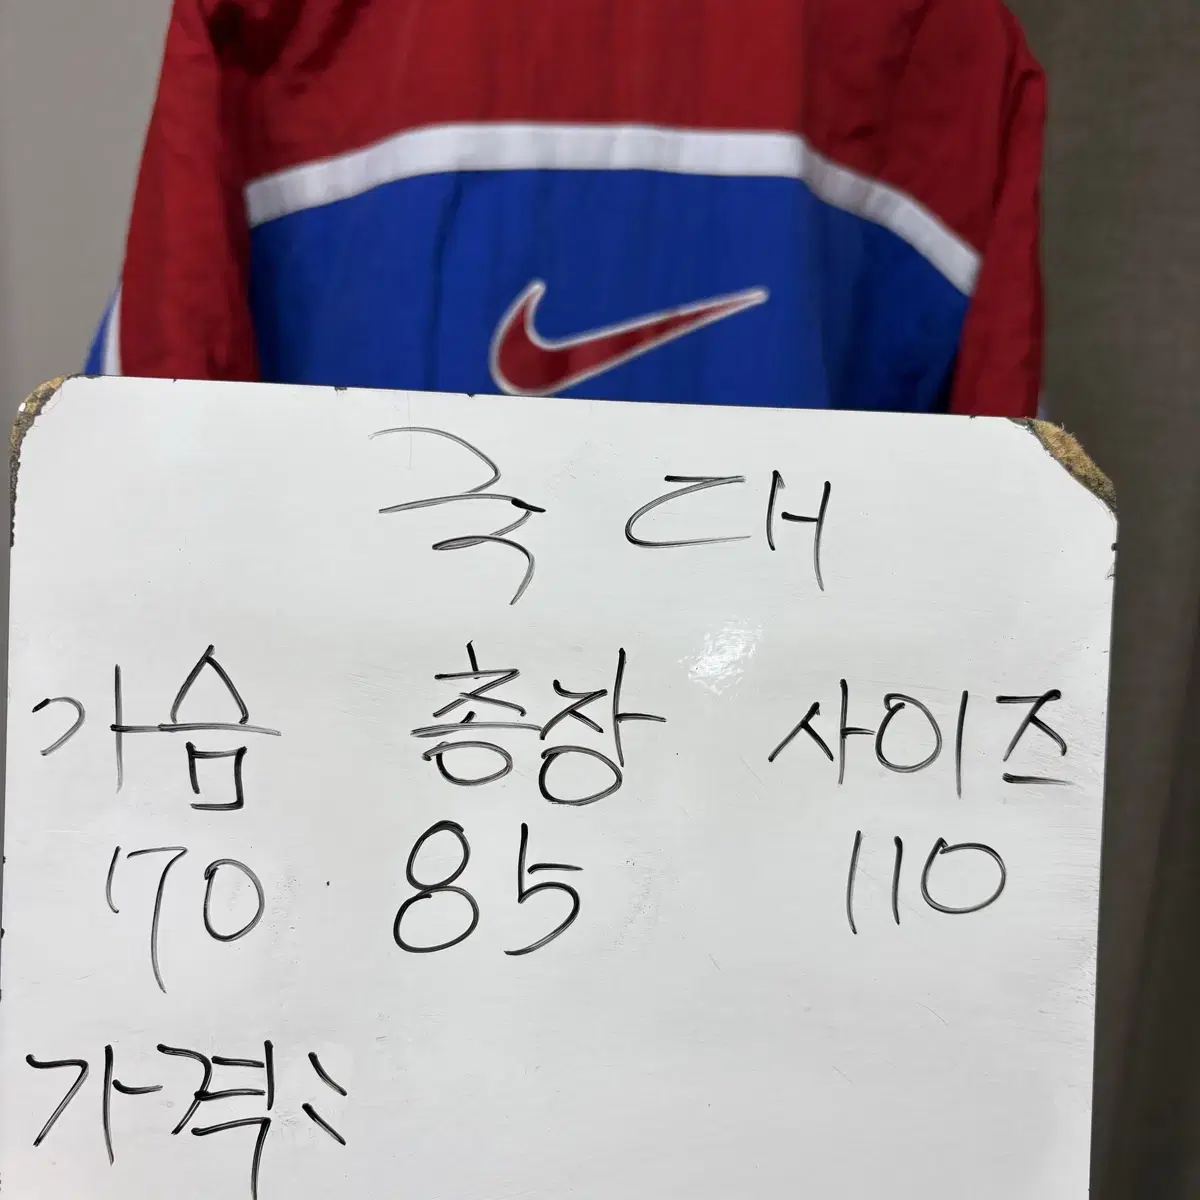 국대
가슴 총장 사이즈
70 85 110
가격: